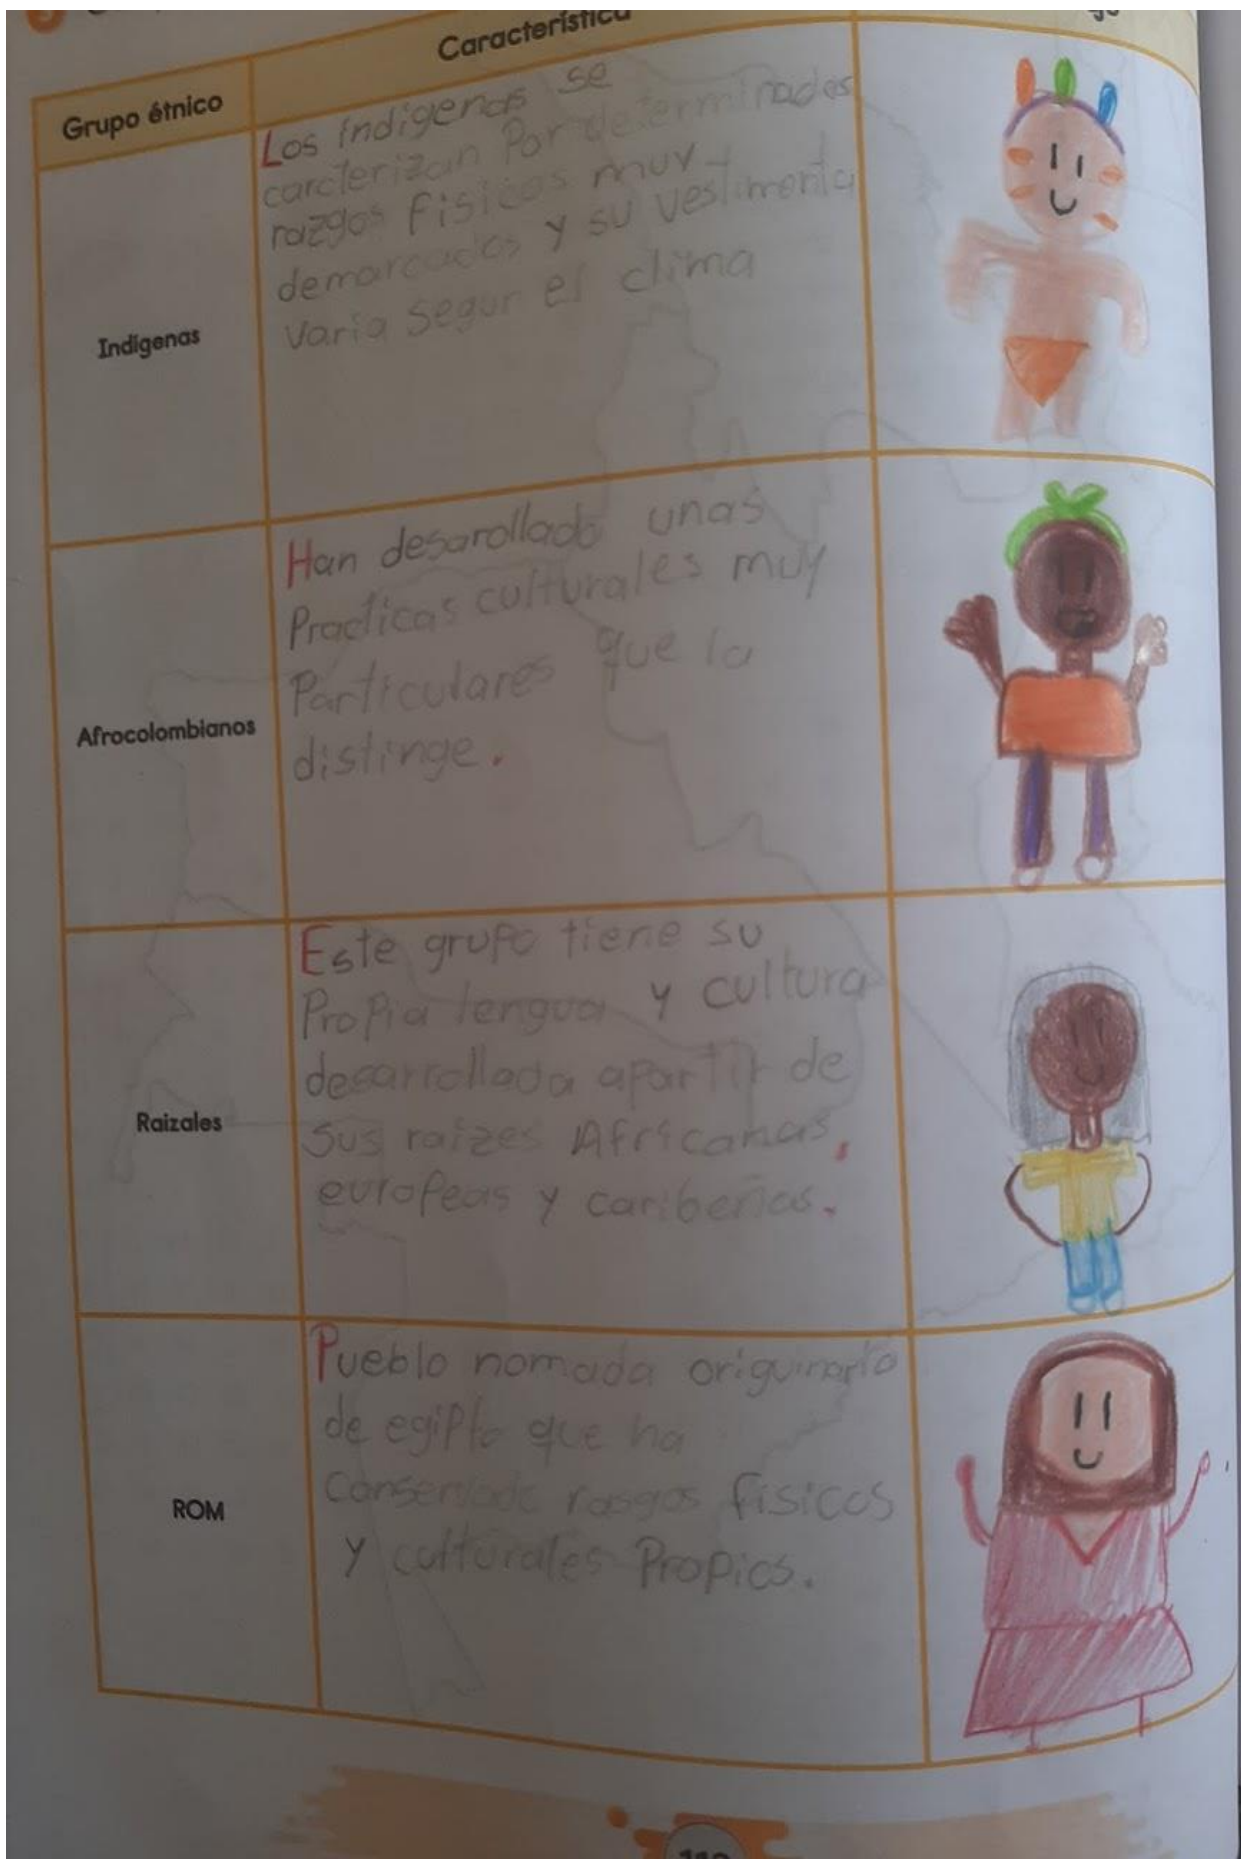 Característica
Grupo étnico
Indígenas
Los indigenas se
carcterizan Por determinados
razgos Fisicos muy
demarcados y su vestimenta
Varia segun el clima
Afrocolombianos
Han desarollado unas
Practicas culturales muy
Particulares que la
distinge.
Raizales
Este grupo tiene su
Propia lengua y cultura
desarrollada apartir de
sus raizes Africanas,
europeas y caribeñas.
ROM
Pueblo nomada origuinario
de egipto que ha
Conservado rasgos físicos
y culturales Propios.